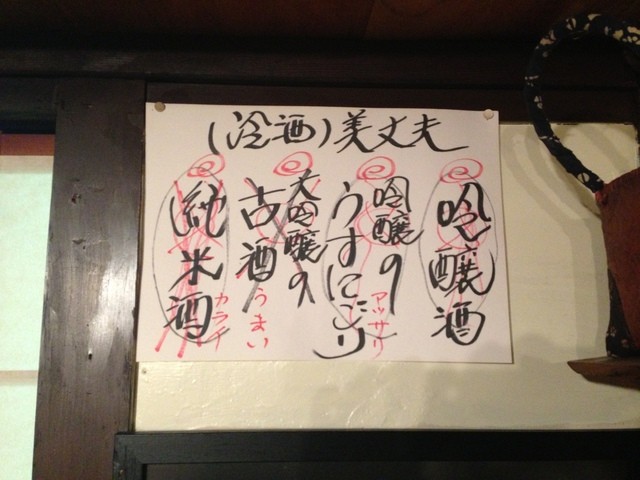 (冷酒)美丈夫
吟醸酒
吟醸の
うすにごり
アッサリ
大吟醸の
古酒
うまい
純米酒
カラチ